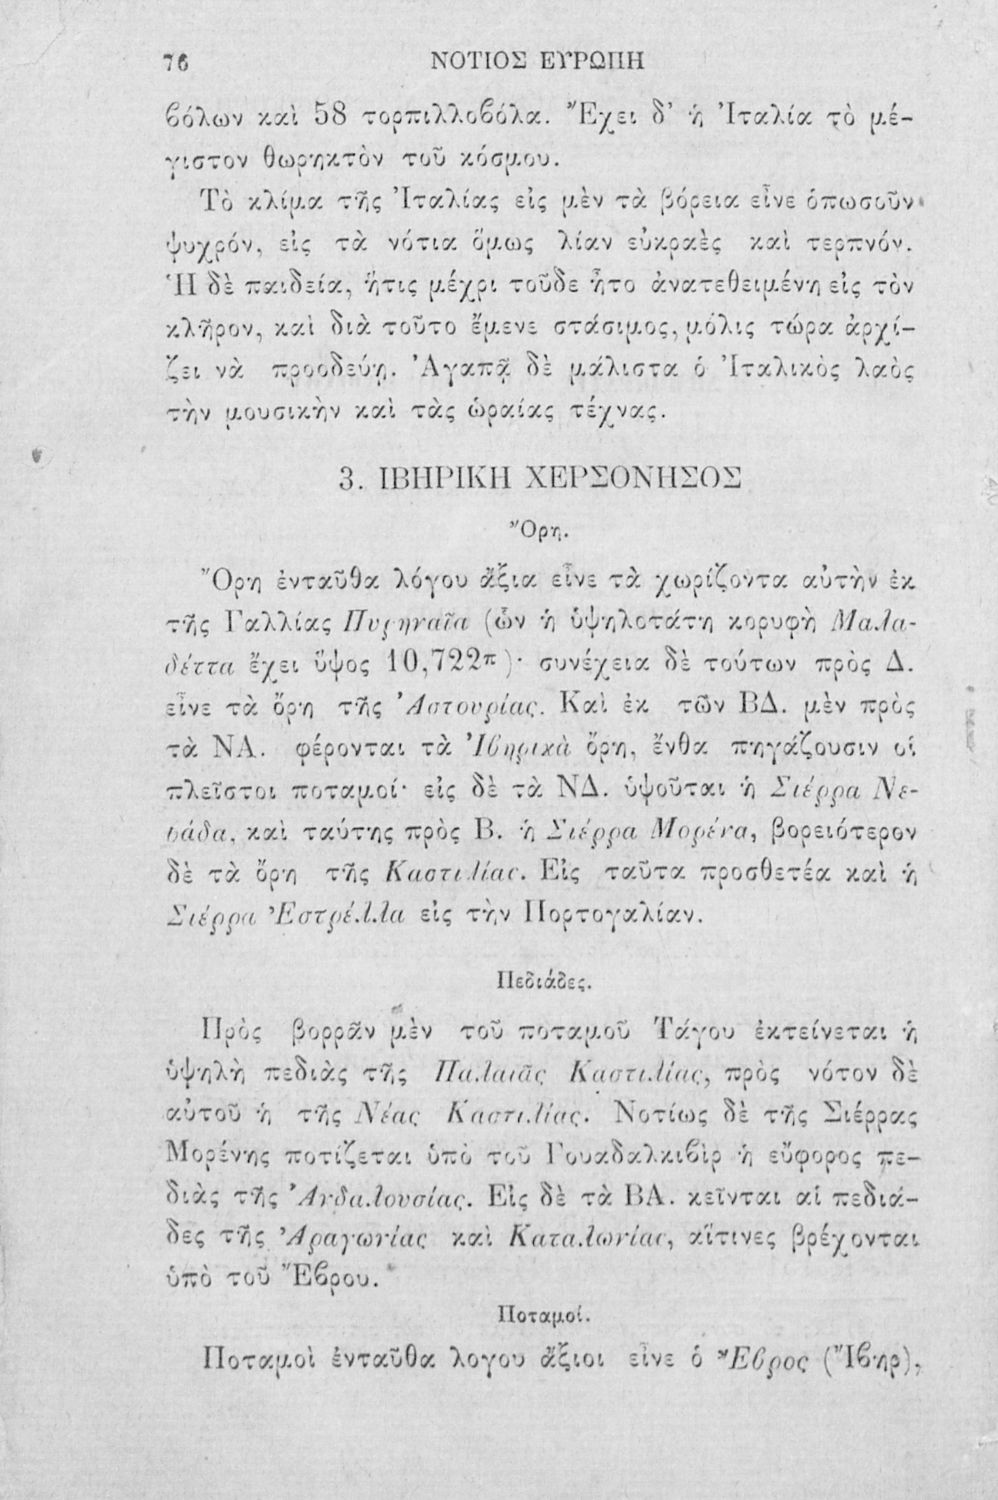 76 ΝΟΤΙΟΣ ΕΥΡΩΠΗ
βόλων καὶ 58 τορπιλλοβόλα. Ἔχει δ’ ἡ Ἰταλία τὸ μέ-
γιστον θωρηκτὸν τοῦ κόσμου.
Τὸ κλίμα τῆς Ἰταλίας εἰς μὲν τὰ βόρεια εἶνε ὁπωσοῦν
ψυχρόν, εἰς τὰ νότια ὅμως λίαν εὐκραὲς καὶ τερπνόν.
Ἡ δὲ παιδεία, ἥτις μέχρι τοῦδε ἦτο ἀνατεθειμένη εἰς τὸν
κλῆρον, καὶ διὰ τοῦτο ἔμενε στάσιμος, μόλις τώρα ἀρχί-
ζει νὰ προοδεύῃ. Ἀγαπᾷ δὲ μάλιστα ὁ Ἰταλικὸς λαὸς
τὴν μουσικὴν καὶ τὰς ὡραίας τέχνας.
3. ΙΒΗΡΙΚΗ ΧΕΡΣΟΝΗΣΟΣ
Ὄρη.
Ὄρη ἐνταῦθα λόγου ἄξια εἶνε τὰ χωρίζοντα αὐτὴν ἐκ
τῆς Γαλλίας Πυρηναῖα (ὧν ἡ ὑψηλοτάτη κορυφὴ Μαλα-
δέττα ἔχει ὕψος 10,722π)· συνέχεια δὲ τούτων πρὸς Δ.
εἶνε τὰ ὄρη τῆς Ἀστουρίας. Καὶ ἐκ τῶν ΒΔ. μὲν πρὸς
τὰ ΝΑ. φέρονται τὰ Ἰβηρικὰ ὄρη, ἔνθα πηγάζουσιν οἱ
πλεῖστοι ποταμοί· εἰς δὲ τὰ ΝΔ. ὑψοῦται ἡ Σιέρρα Νε-
βάδα, καὶ ταύτης πρὸς Β. ἡ Σιέρρα Μορένα, βορειότερον
δὲ τὰ ὄρη τῆς Καστιλίας. Εἰς ταῦτα προσθετέα καὶ ἡ
Σιέρρα Ἐστρέλλα εἰς τὴν Πορτογαλίαν.
Πεδιάδες.
Πρὸς βορρᾶν μὲν τοῦ ποταμοῦ Τάγου ἐκτείνεται ἡ
ὑψηλὴ πεδιὰς τῆς Παλαιᾶς Καστιλίας, πρὸς νότον δὲ
αὐτοῦ ἡ τῆς Νέας Καστιλίας. Νοτίως δὲ τῆς Σιέρρας
Μορένης ποτίζεται ὑπὸ τοῦ Γουαδαλκιβὶρ ἡ εὔφορος πε-
διὰς τῆς Ἀνδαλουσίας. Εἰς δὲ τὰ ΒΑ. κεῖνται αἱ πεδιά-
δες τῆς Ἀραγωνίας καὶ Καταλωνίας, αἵτινες βρέχονται
ὑπὸ τοῦ Ἔβρου.
Ποταμοί.
Ποταμοὶ ἐνταῦθα λογου ἄξιοι εἶνε ὁ Ἔβρος (Ἴβηρ),